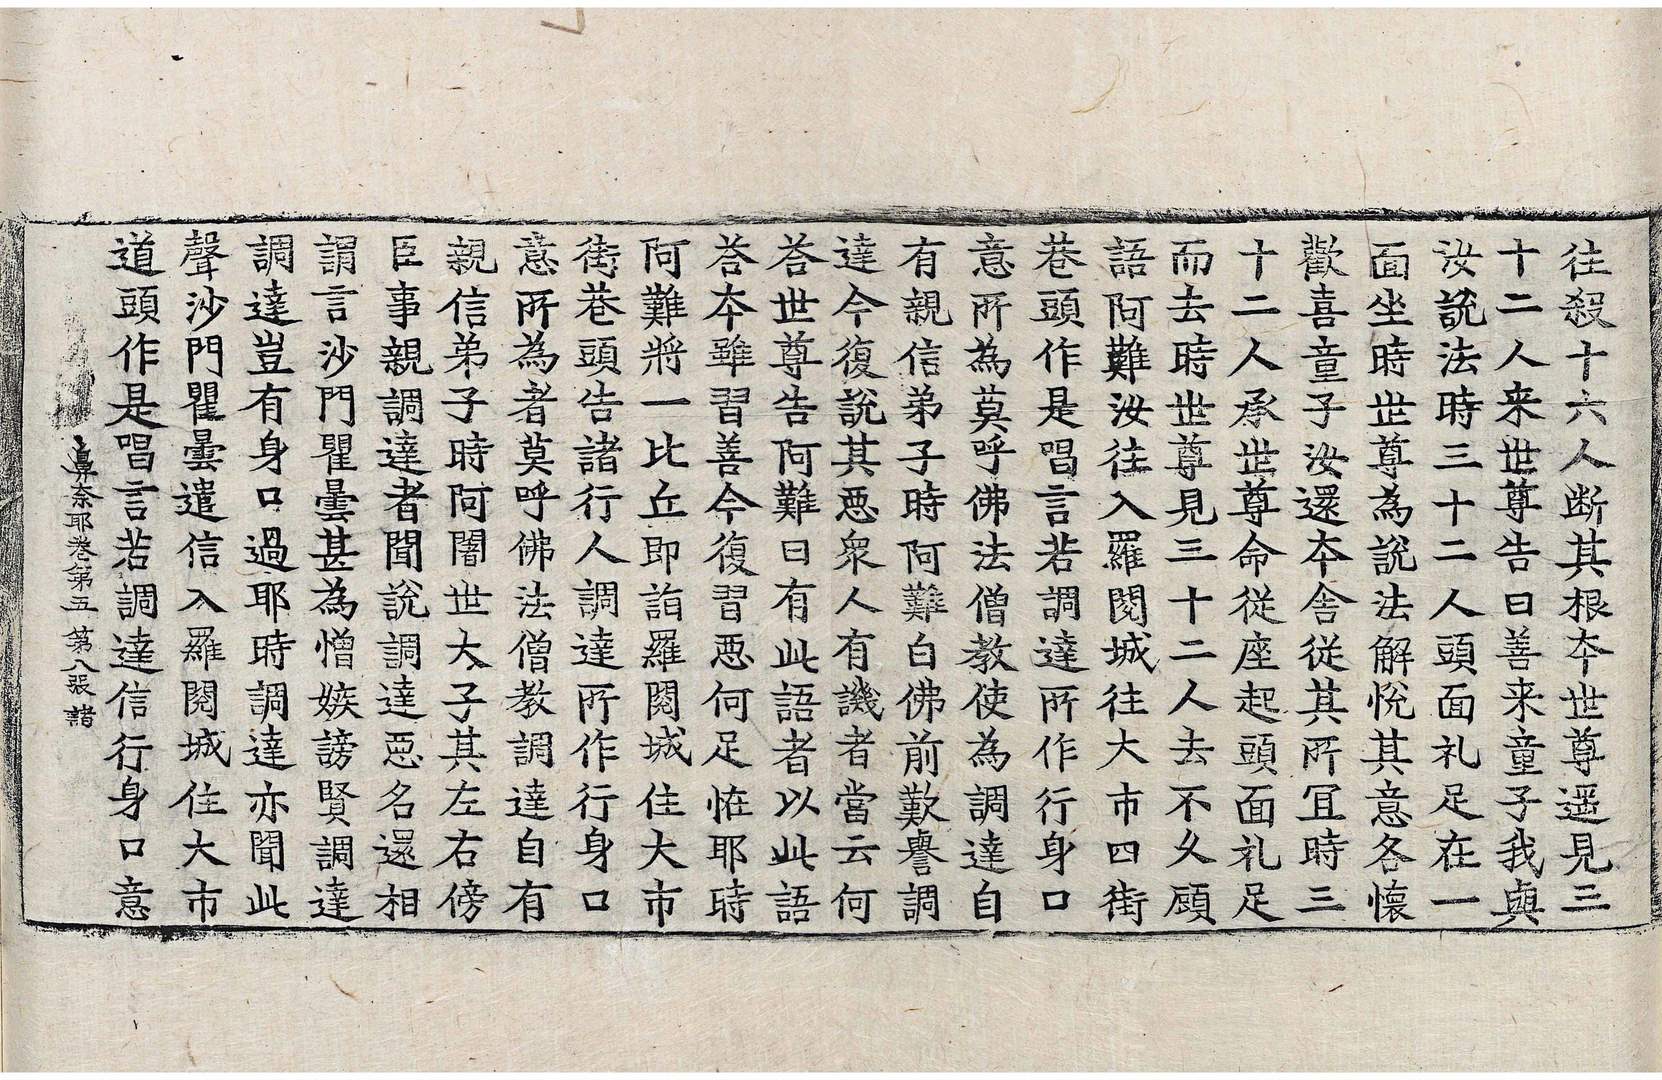 往殺十六人断其根夲世尊遥見三
十二人来世尊告曰善来童子我與
汝說法時三十二人頭面礼足在一
面坐時世尊為說法解悅其意各懷
歡喜童子汝還夲舍従其所冝時三
十二人承世尊命従座起頭面礼足
而去時世尊見三十二人去不久顧
語阿難汝往入羅閱城往大市四街
巷頭作是唱言若調達所作行身口
意所為莫呼佛法僧教使為調達自
有親信弟子時阿難白佛前歎譽調
達今復說其惡衆人有譏者當云何
荅世尊告阿難曰有此語者以此語
荅夲雖習善今復習惡何足恠耶時
阿難將一比丘即詣羅閱城住大市
街巷頭告諸行人調達所作行身口
意所為者莫呼佛法僧教調達自有
親信弟子時阿闍世大子其左右傍
臣事親調達者聞說調達惡名還相
謂言沙門瞿曇甚為憎嫉謗賢調達
調達豈有身口過耶時調達亦聞此
聲沙門瞿曇遣信入羅閱城住大市
道頭作是唱言若調達信行身口意
鼻奈耶卷第五 第八張 諸